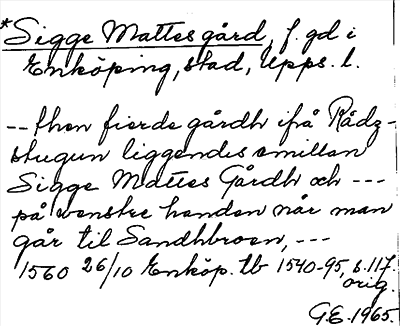 *Sigge Mattes gård, f. gd i
Enköping, stad, Upps. l.
-- then fierde gårdh ifrå Rådz-
stugun liggendis emillan
Sigge Mattes Gårdh och ---
på venstre handen når man
går til Sandhbroen, ---
1560 26/10 Enköp. tb 1540-95, s. 117.
orig.
G.E. 1965.